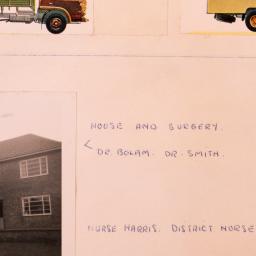 HOUSE AND SURGERY.
< DR. BOLAM. DR. SMITH.
NURSE HARRIS. DISTRICT NURSE